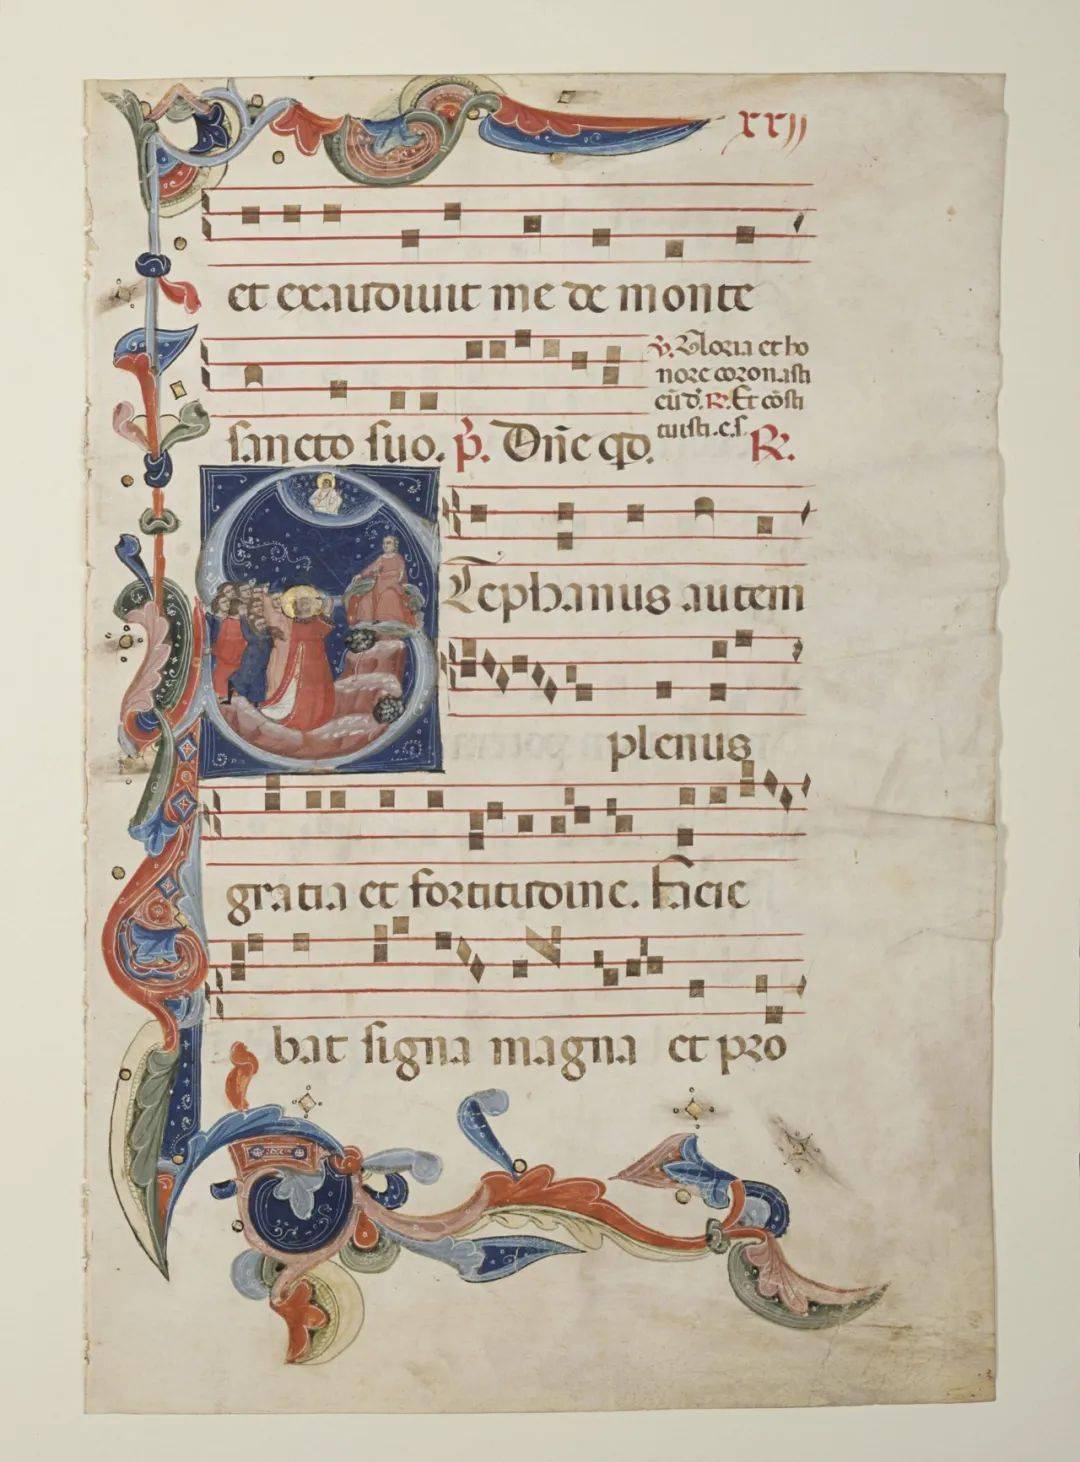 xxij
et exaudiuit me de monte
sancto suo. p̃. Dñe qd.
ṽ. Gloria et ho
nore coronasti
eũ d̃. R. Et cõsti
tuisti. e. s.
R.
Tephanus autem
plenus
gratia et fortitudine. facie
bat signa magna et pro